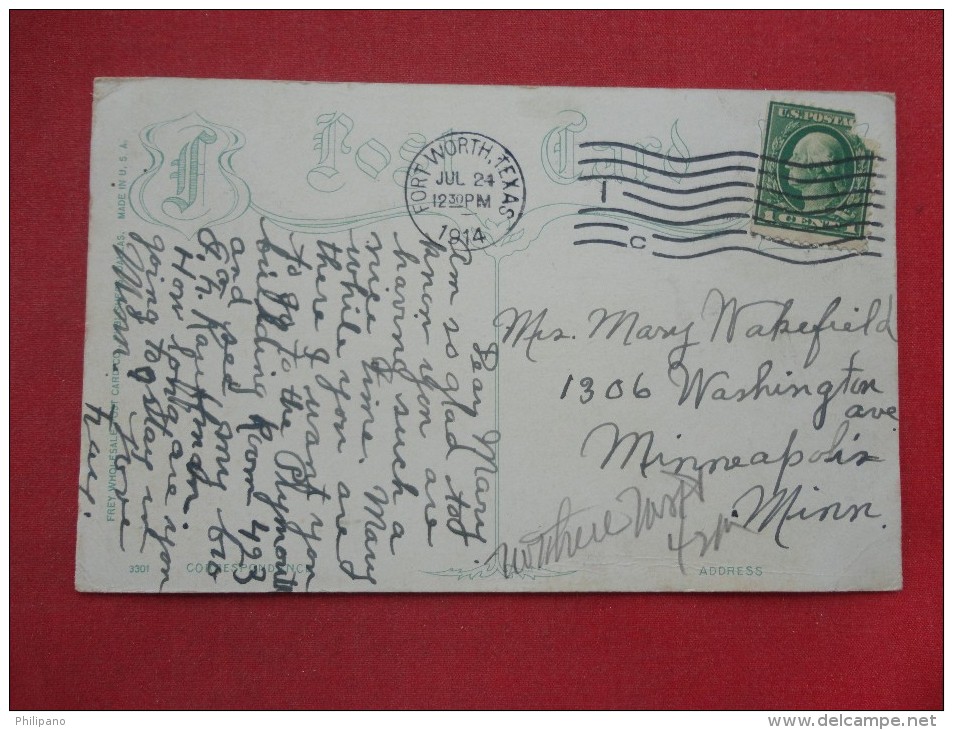 Post Card
FORT WORTH, TEXAS
JUL 24
12 30 PM
1914
U.S. POSTAGE
Mrs. Mary Wakefield
1306 Washington
ave
Minneapolis
Minn.
Dear Mary
am so glad to
know you are
having such a
nice time. Mary
while you are
there I want you
to go to the Plymouth
building Room 423
and see my bro
Kauffman.
How long are you
going to stay in
Minn Love
MADE IN U.S.A.
FREY WHOLESALE POST CARD CO.
3301
CORRESPONDENCE
ADDRESS
Philipano
www.delcampe.net